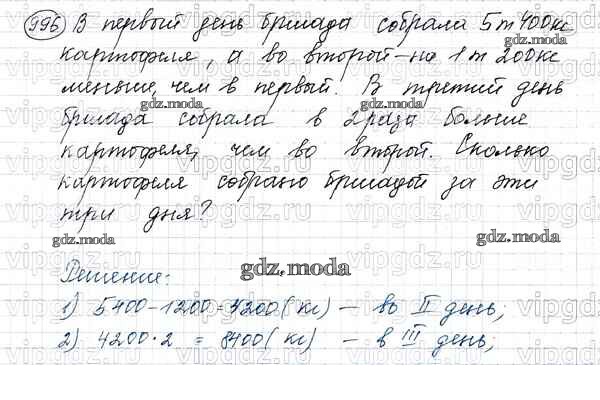 996 В первый день бригада собрала 5 т 400 кг
картофеля, а во второй – на 1 т 200 кг
меньше, чем в первый. В третий день
бригада собрала в 2 раза больше
картофеля, чем во второй. Сколько
картофеля собрано бригадой за эти
три дня?
Решение:
1) 5400 – 1200 = 4200 (кг) – во II день;
2) 4200 · 2 = 8400 (кг) – в III день;
gdz.moda
gdz.moda
gdz.moda
gdz.moda
gdz.moda
gdz.moda
vipgdz.ru